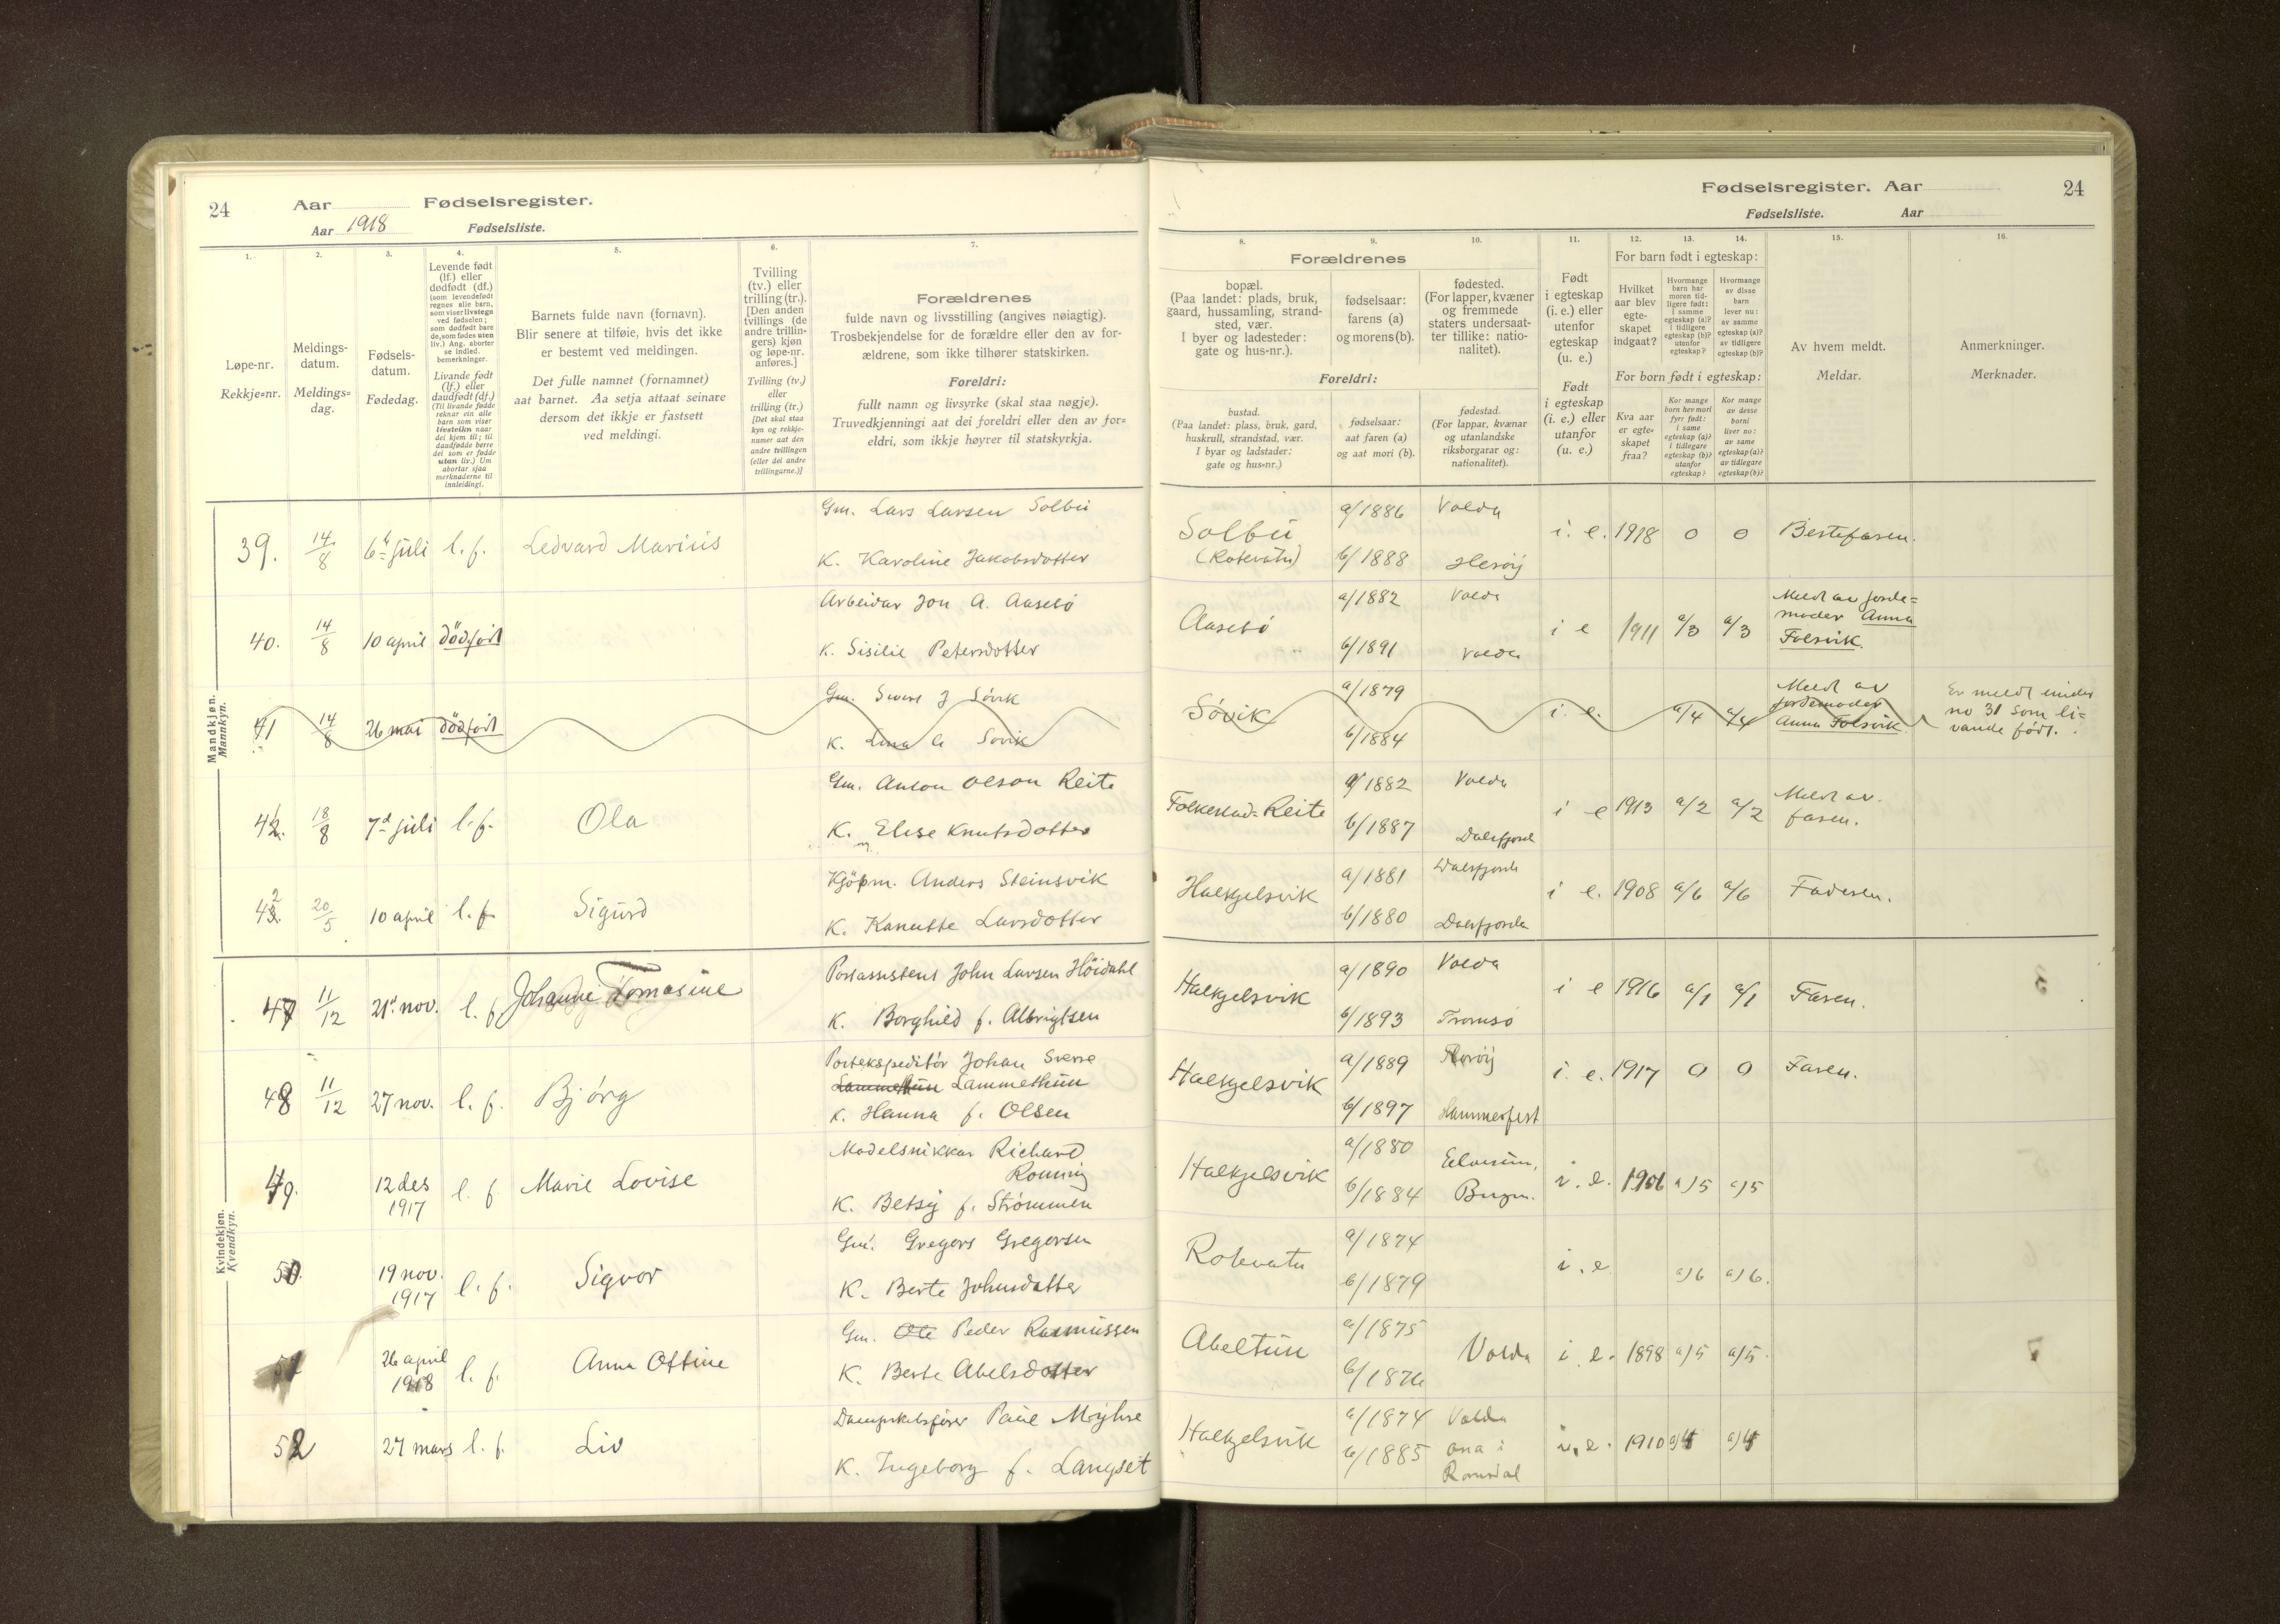 24
Aar
Fødselsregister.
Aar 1918
Fødselsliste.
1.
2.
3.
4.
5.
6.
7.
Løpe-nr.
Rekkje=nr.
Meldings-
datum.
Meldings=
dag.
Fødsels-
datum.
Fødedag.
Levende født
(lf.) eller
dødfødt (df.)
(som levendefødt
regnes alle barn,
som viser livstegn
ved fødselen;
som dødfødt bare
de, som fødes uten
liv.) Ang. aborter
se indled.
bemerkninger.
Livande født
(lf.) eller
daudfødt (df.)
(Til livande fødde
reknar ein alle
barn som viser
livsteikn naar
dei kjem til; til
daudfødde berre
dei som er fødde
utan liv.) Um
abortar sjaa
merknaderne til
innleidingi.
Barnets fulde navn (fornavn).
Blir senere at tilføie, hvis det ikke
er bestemt ved meldingen.
Det fulle namnet (fornamnet)
aat barnet. Aa setja attaat seinare
dersom det ikkje er fastsett
ved meldingi.
Tvilling
(tv.) eller
trilling (tr.).
[Den anden
tvillings (de
andre trillin-
gers) kjøn
og løpe-nr.
anføres.]
Tvilling (tv.)
eller
trilling (tr.)
[Det skal staa
kyn og rekkje-
numer aat den
andre tvillingen
(eller dei andre
trillingarne.)]
Forældrenes
fulde navn og livsstilling (angives nøiagtig).
Trosbekjendelse for de forældre eller den av for-
ældrene, som ikke tilhører statskirken.
Foreldri:
fullt namn og livsyrke (skal staa nøgje).
Truvedkjenningi aat dei foreldri eller den av for=
eldri, som ikkje høyrer til statskyrkja.
Fødselsregister. Aar
24
Fødselsliste.
Aar
8.
9.
10.
11.
12.
13.
14.
15.
16.
Forældrenes
bopæl.
(Paa landet: plads, bruk,
gaard, hussamling, strand-
sted, vær.
I byer og ladesteder:
gate og hus-nr.).
fødselsaar:
farens (a)
og morens (b).
fødested.
(For lapper, kvæner
og fremmede
staters undersaat-
ter tillike: natio-
nalitet).
Foreldri:
bustad.
(Paa landet: plass, bruk, gard,
huskrull, strandstad, vær.
I byar og ladstader:
gate og hus=nr.)
fødselsaar:
aat faren (a)
og aat mori (b).
fødestad.
(For lappar, kvænar
og utanlandske
riksborgarar og:
nationalitet).
Født
i egteskap
(i. e.) eller
utenfor
egteskap
(u. e.)
Født
i egteskap
(i. e.) eller
utanfor
(u. e.)
For barn født i egteskap:
Hvilket
aar blev
egte-
skapet
indgaat?
Hvormange
barn har
moren tid-
ligere født:
i samme
egteskap (a)?
i tidligere
egteskap (b)?
utenfor
egteskap?
Hvormange
av disse
barn
lever nu:
av samme
egteskap (a)?
av tidligere
egteskap (b)?
For born født i egteskap:
Kva aar
er egte-
skapet
fraa?
Kor mange
born hev mori
fyrr født:
i same
egteskap (a)?
i tidlegare
egteskap (b)?
utanfor
egteskap?
Kor mange
av desse
borni
liver no:
av same
egteskap (a)?
av tidlegare
egteskap (b)?
Av hvem meldt.
Meldar.
Anmerkninger.
Merknader.
Mandkjøn.
Mannkyn.
39. 14/8 6te juli l. f. Ledvard Marius
Gm. Lars Larsen Solbu
K. Karoline Jakobsdotter
Solbu
(Rotevatn)
a/1886 Volda
b/1888 Herøy
i. e. 1918 0 0 Bestefaren.
40. 14/8 10 april dödfödt
Arbeidar Jon A. Aasebö
K. Sisilie Petersdotter
Aasebö
a/1882 Volda
b/1891 Volda
i e 1911 a/3 a/3
Meldt av jorde=
moder Anna
Folsvik.
41 14/8 26 mai dödfödt
Gm. Sivert J Sövik
K. Lina Sövik
Sövik
a/1879
b/1884
i. e. a/4 a/4
Meldt av
jordemoder
Anna Folsvik.
Er meldt under
no 31 som li=
vande födt.
42. 18/8 7d juli l. f. Ola
Gm. Anton Olson Reite
K. Elise Knutsdotter
Folkestad=Reite
a/1882 Volda
b/1887 Dalsfjord
i e 1913 a/2 a/2
Meldt av
faren.
42. 20/5 10 april l. f. Sigurd
Kjöpm. Anders Steinsvik
K. Kanutte Larsdotter
Halkjelsvik
a/1881 Dalsfjord
b/1880 Dalsfjorden
i e. 1908 a/6 a/6 Faderen.
Kvindekjøn.
Kvendkyn.
47 11/12 21d nov. l. f. Johanne Tomasine
Postassistent John Larsen Höidahl
K. Borghild f. Albrigtsen
Halkjelsvik
a/1890 Volda
b/1893 Tromsö
i e 1916 a/1 a/1 Faren.
48 11/12 27 nov. l. f. Bjørg
Postekspeditör Johan Sverre
Lammethun Lammethun
K. Hanna f. Olsen
Halkjelsvik
a/1889 Floröy
b/1897 Hammerfest
i. e. 1917 0 0 Faren.
49. 12 des
1917 l. f Marie Lovise
Modelsnikkar Richard
Roming
K. Betsy f. Strömmen
Halkjelsvik
a/1880 Elverum,
b/1884 Bergen.
i. e. 1906 a)5 a)5
50. 19 nov.
1917 l. f. Sigvor
Gm. Gregors Gregersen
K. Berte Johnsdatter
Rotevatn
a/1874
b/1879
i. e a)6 a)6.
51 26 april
1918 l. f. Anna Ottine
Gm. Ole Peder Rasmussen
K. Berte Abelsdotter
Abeltun
a/1875
b/1876
Volda i. e. 1898 a)5 a)5.
52 27 mars l. f. Liv
Dampskibsfører Paul Myhre
K. Ingeborg f. Langset
Halkjelsvik
a/1874 Volda
b/1885 ona i
Romsdal
i. e. 1910 a)4 a)4